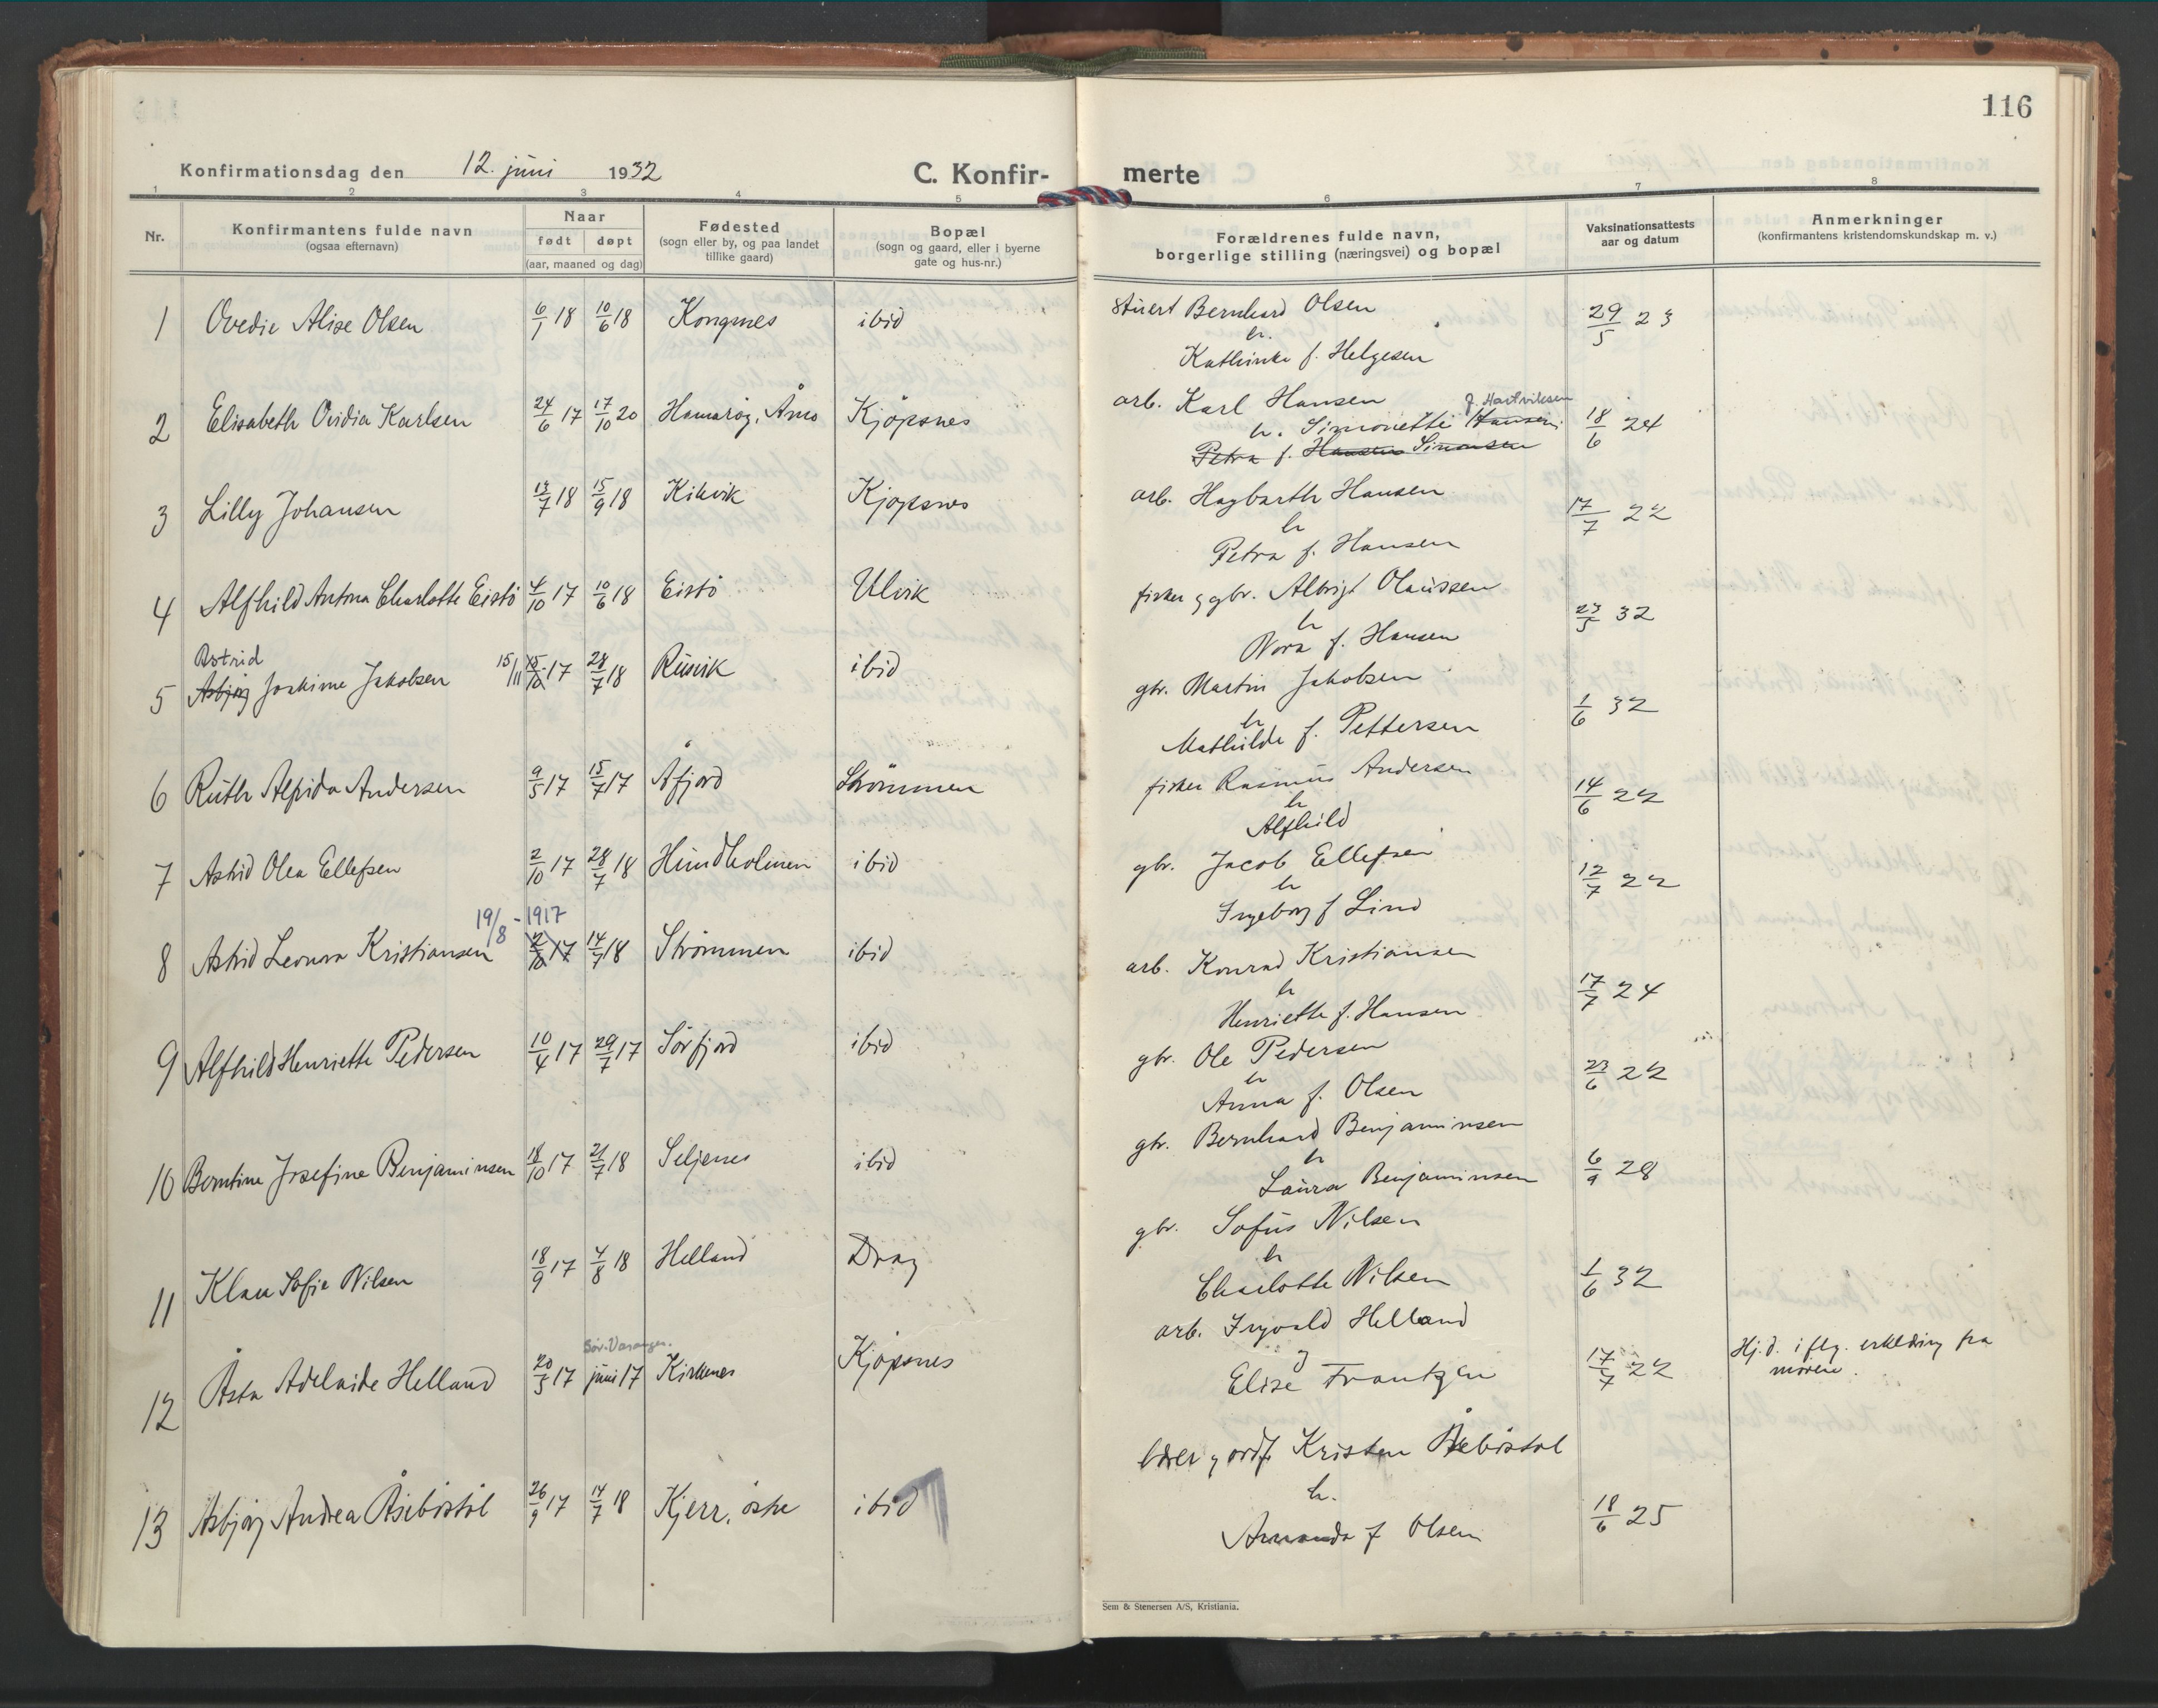 116
Konfirmationsdag den 12. juni 1932
C. Konfir- merte
1 2 3 4 5 6 7 8
Nr.
Konfirmantens fulde navn
(ogsaa efternavn)
Naar
født døpt
(aar, maaned og dag)
Fødested
(sogn eller by, og paa landet
tillike gaard)
Bopæl
(sogn og gaard, eller i byerne
gate og hus-nr.)
Forældrenes fulde navn,
borgerlige stilling (næringsvei) og bopæl
Vaksinationsattests
aar og datum
Anmerkninger
(konfirmantens kristendomskundskap m. v.)
1 Ovedie Alise Olsen 6/1 18 10/6 18 Kongsnes ibid
stuert Bernhard Olsen
h.
Kathinka f. Helgesen
29/5 23
2 Elisabeth Ovidia Karlsen 24/6 17 17/10 20 Hamarøy, Åmo Kjøpsnes
arb. Karl Hansen
f. Hartviksen
h. Simonetti Hansen
Petra f. Hansen Simonsen
18/6 24
3 Lilly Johansen 13/7 18 15/9 18 Kilvik Kjøpsnes
arb. Hagbarth Hansen
h
Petra f. Hansen
17/7 22
4 Alfhild Antona Charlotte Eistö 4/10 17 10/6 18 Eistö Ulvik
fisker g gbr. Albrigt Olaussen
h
Nora f. Hansen
23/5 32
Astrid
5 Asbjörg Joakime Jakobsen 15/11 15/10 17 28/7 18 Rusvik ibid
gbr. Martin Jakobsen
h
Mathilde f. Pettersen
1/6 32
6 Ruth Alfida Andersen 9/5 17 15/7 17 Åfjord Strömmen
fisker Rasmus Andersen
h
Alfhild
14/6 22
7 Astrid Olea Ellefsen 2/10 17 28/7 18 Hundholmen ibid
gbr. Jacob Ellefsen
h
Ingeborg f Lind
12/7 22
19/8 - 1917
8 Astrid Leonora Kristiansen 2/10 17 14/7 18 Strömmen ibid
arb. Konrad Kristiansen
h
Henriette f. Hansen
17/7 24
9 Alfhild Henriette Pedersen 10/4 17 29/7 17 Sörfjord ibid
gbr. Ole Pedersen
h
Anna f. Olsen
23/6 22
10 Berntine Josefine Benjaminsen 18/10 17 21/7 18 Seljenes ibid
gbr. Bernhard Benjaminsen
h
Laura Benjaminsen
6/9 28
11 Klau Sofie Nilsen 18/9 17 4/8 18 Helland Drag
gbr. Sofus Nilsen
h
Charlotte Nilsen
1/6 32
Sör-Varanger.
12 Åsta Adelaide Helland 20/3 17 juni 17 Kirkenes Kjöpsnes
arb. Ingvald Helland
g
Elise Frantzen
17/7 22
Hj.d. iflg. erklæring fra
moren.
13 Asbjörg Andrea Åseböstöl 26/9 17 14/7 18 Kjerr, östre ibid
lærer g ordf. Kristen Åsebøstøl
h.
Amanda f Olsen
18/6 25
Sem & Stenersen A/S, Kristiania.